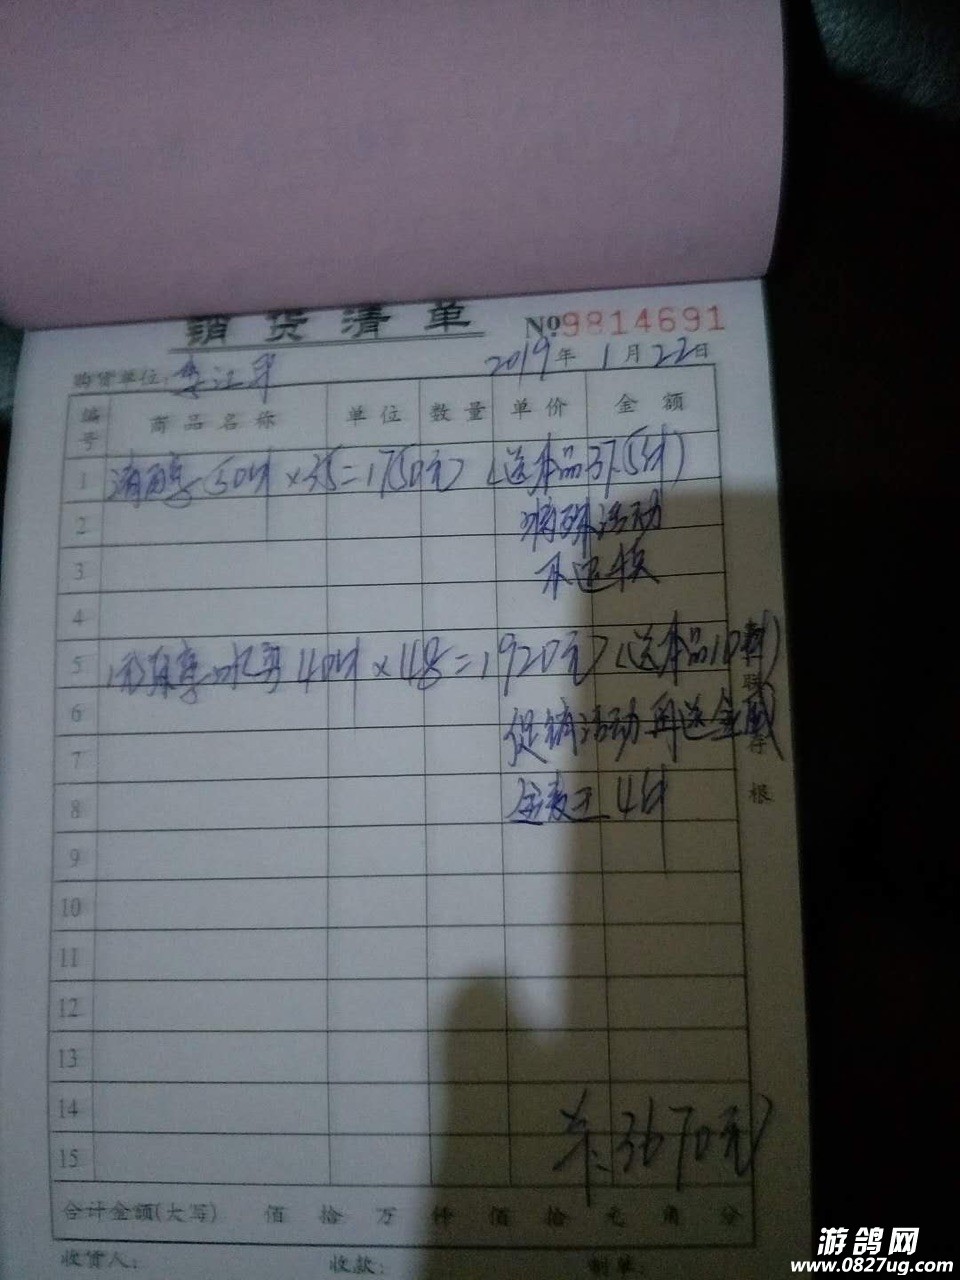 销货清单 №9814691
购货单位: 李江 2019年1月22日
编号 商品名称 单位 数量 单价 金额
1 清醇50件×35=1750元 (送本品37.5件)
2 活动
3 不退换
4
5 40件×48=1920元 (送本品10件)
6 促销活动再送金威
7
8 金麦王4件
9
10
11
12
13
14
15
共:3670元
合计金额(大写) 佰 拾 万 仟 佰 拾 元 角 分
收货人: 收款: 制单:
联
存
根
游鸽网
www.0827ug.com